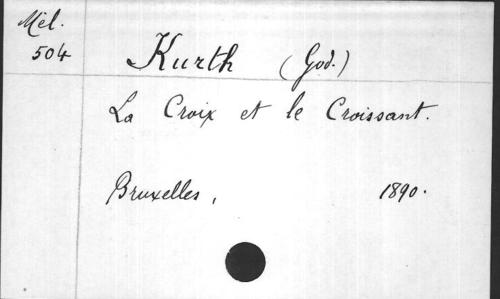 Mél.
504
Kurth (God.)
La Croix et le Croissant.
Bruxelles, 1890.